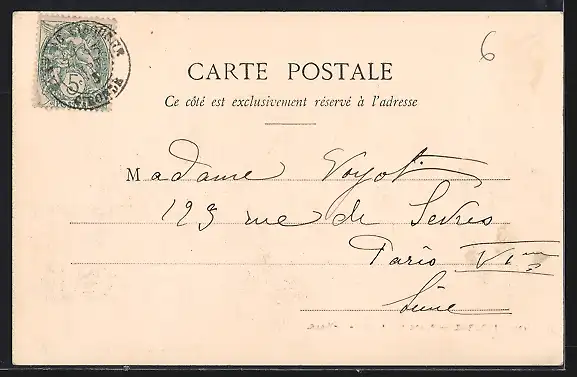 6
CARTE POSTALE
Ce côté est exclusivement réservé à l'adresse
Madame Voyot
123 rue de Sevres
Paris VIme
Seine
5c
GIRONDE